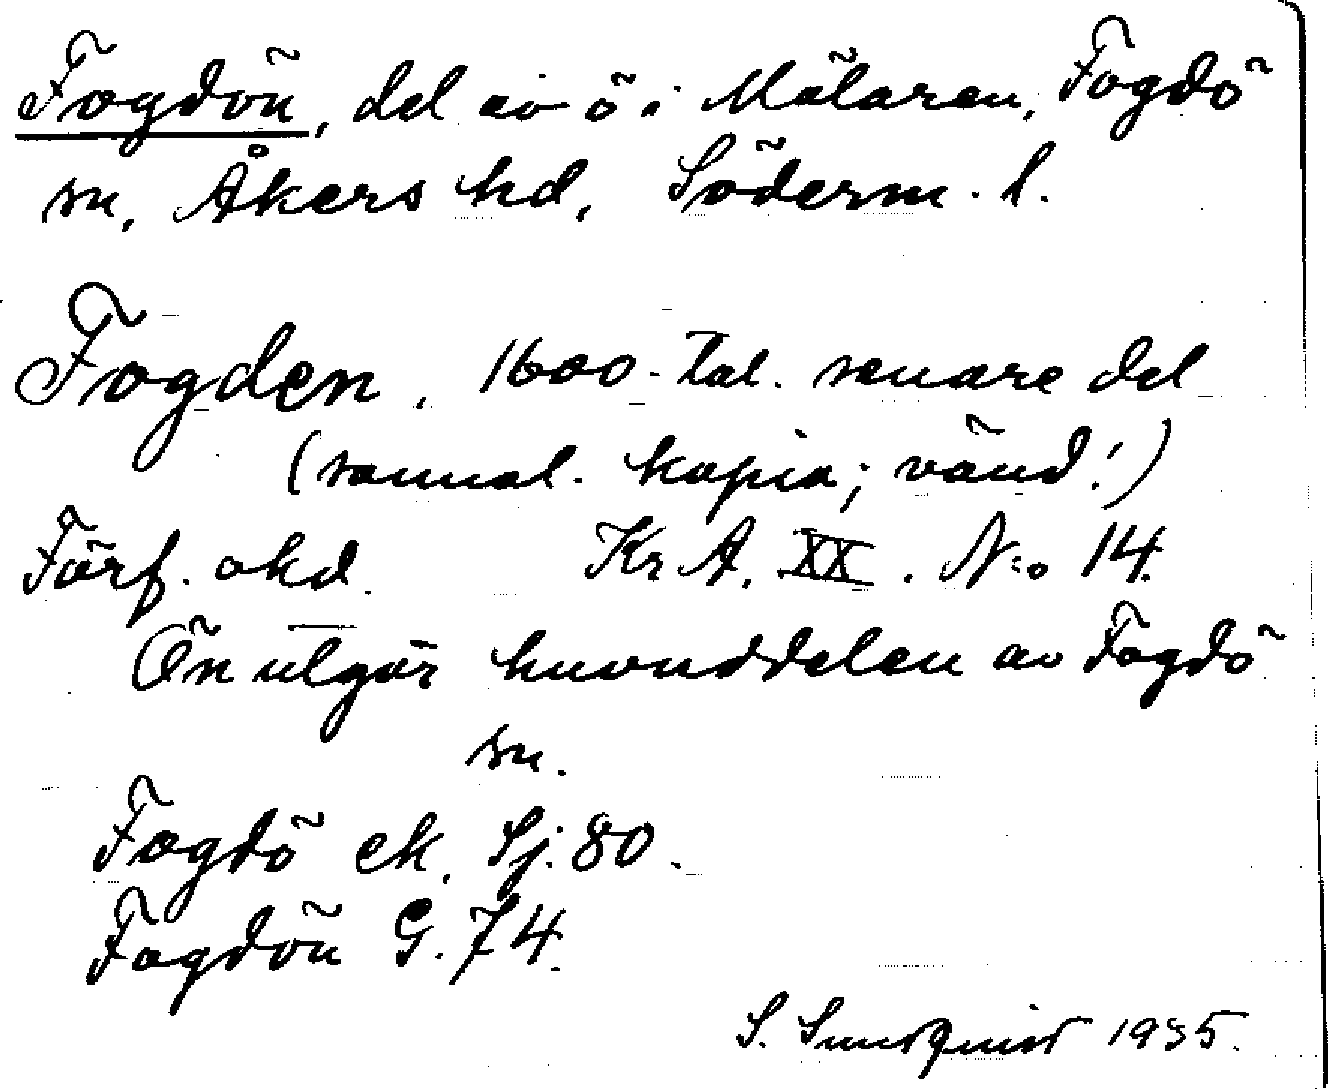 Fogdön, del av ö i Mälaren, Fogdö
sn, Åkers hd, Söderm. l.
Fogden, 1600-tal. senare del
(samtal. kopia; vänd!)
Förf. okd. Kr A. XX. No 14.
Ön utgör huvuddelen av Fogdö
sn.
Fogdö ek. Sj. 80.
Fogdön G. 74.
S. Sundquist 1935.